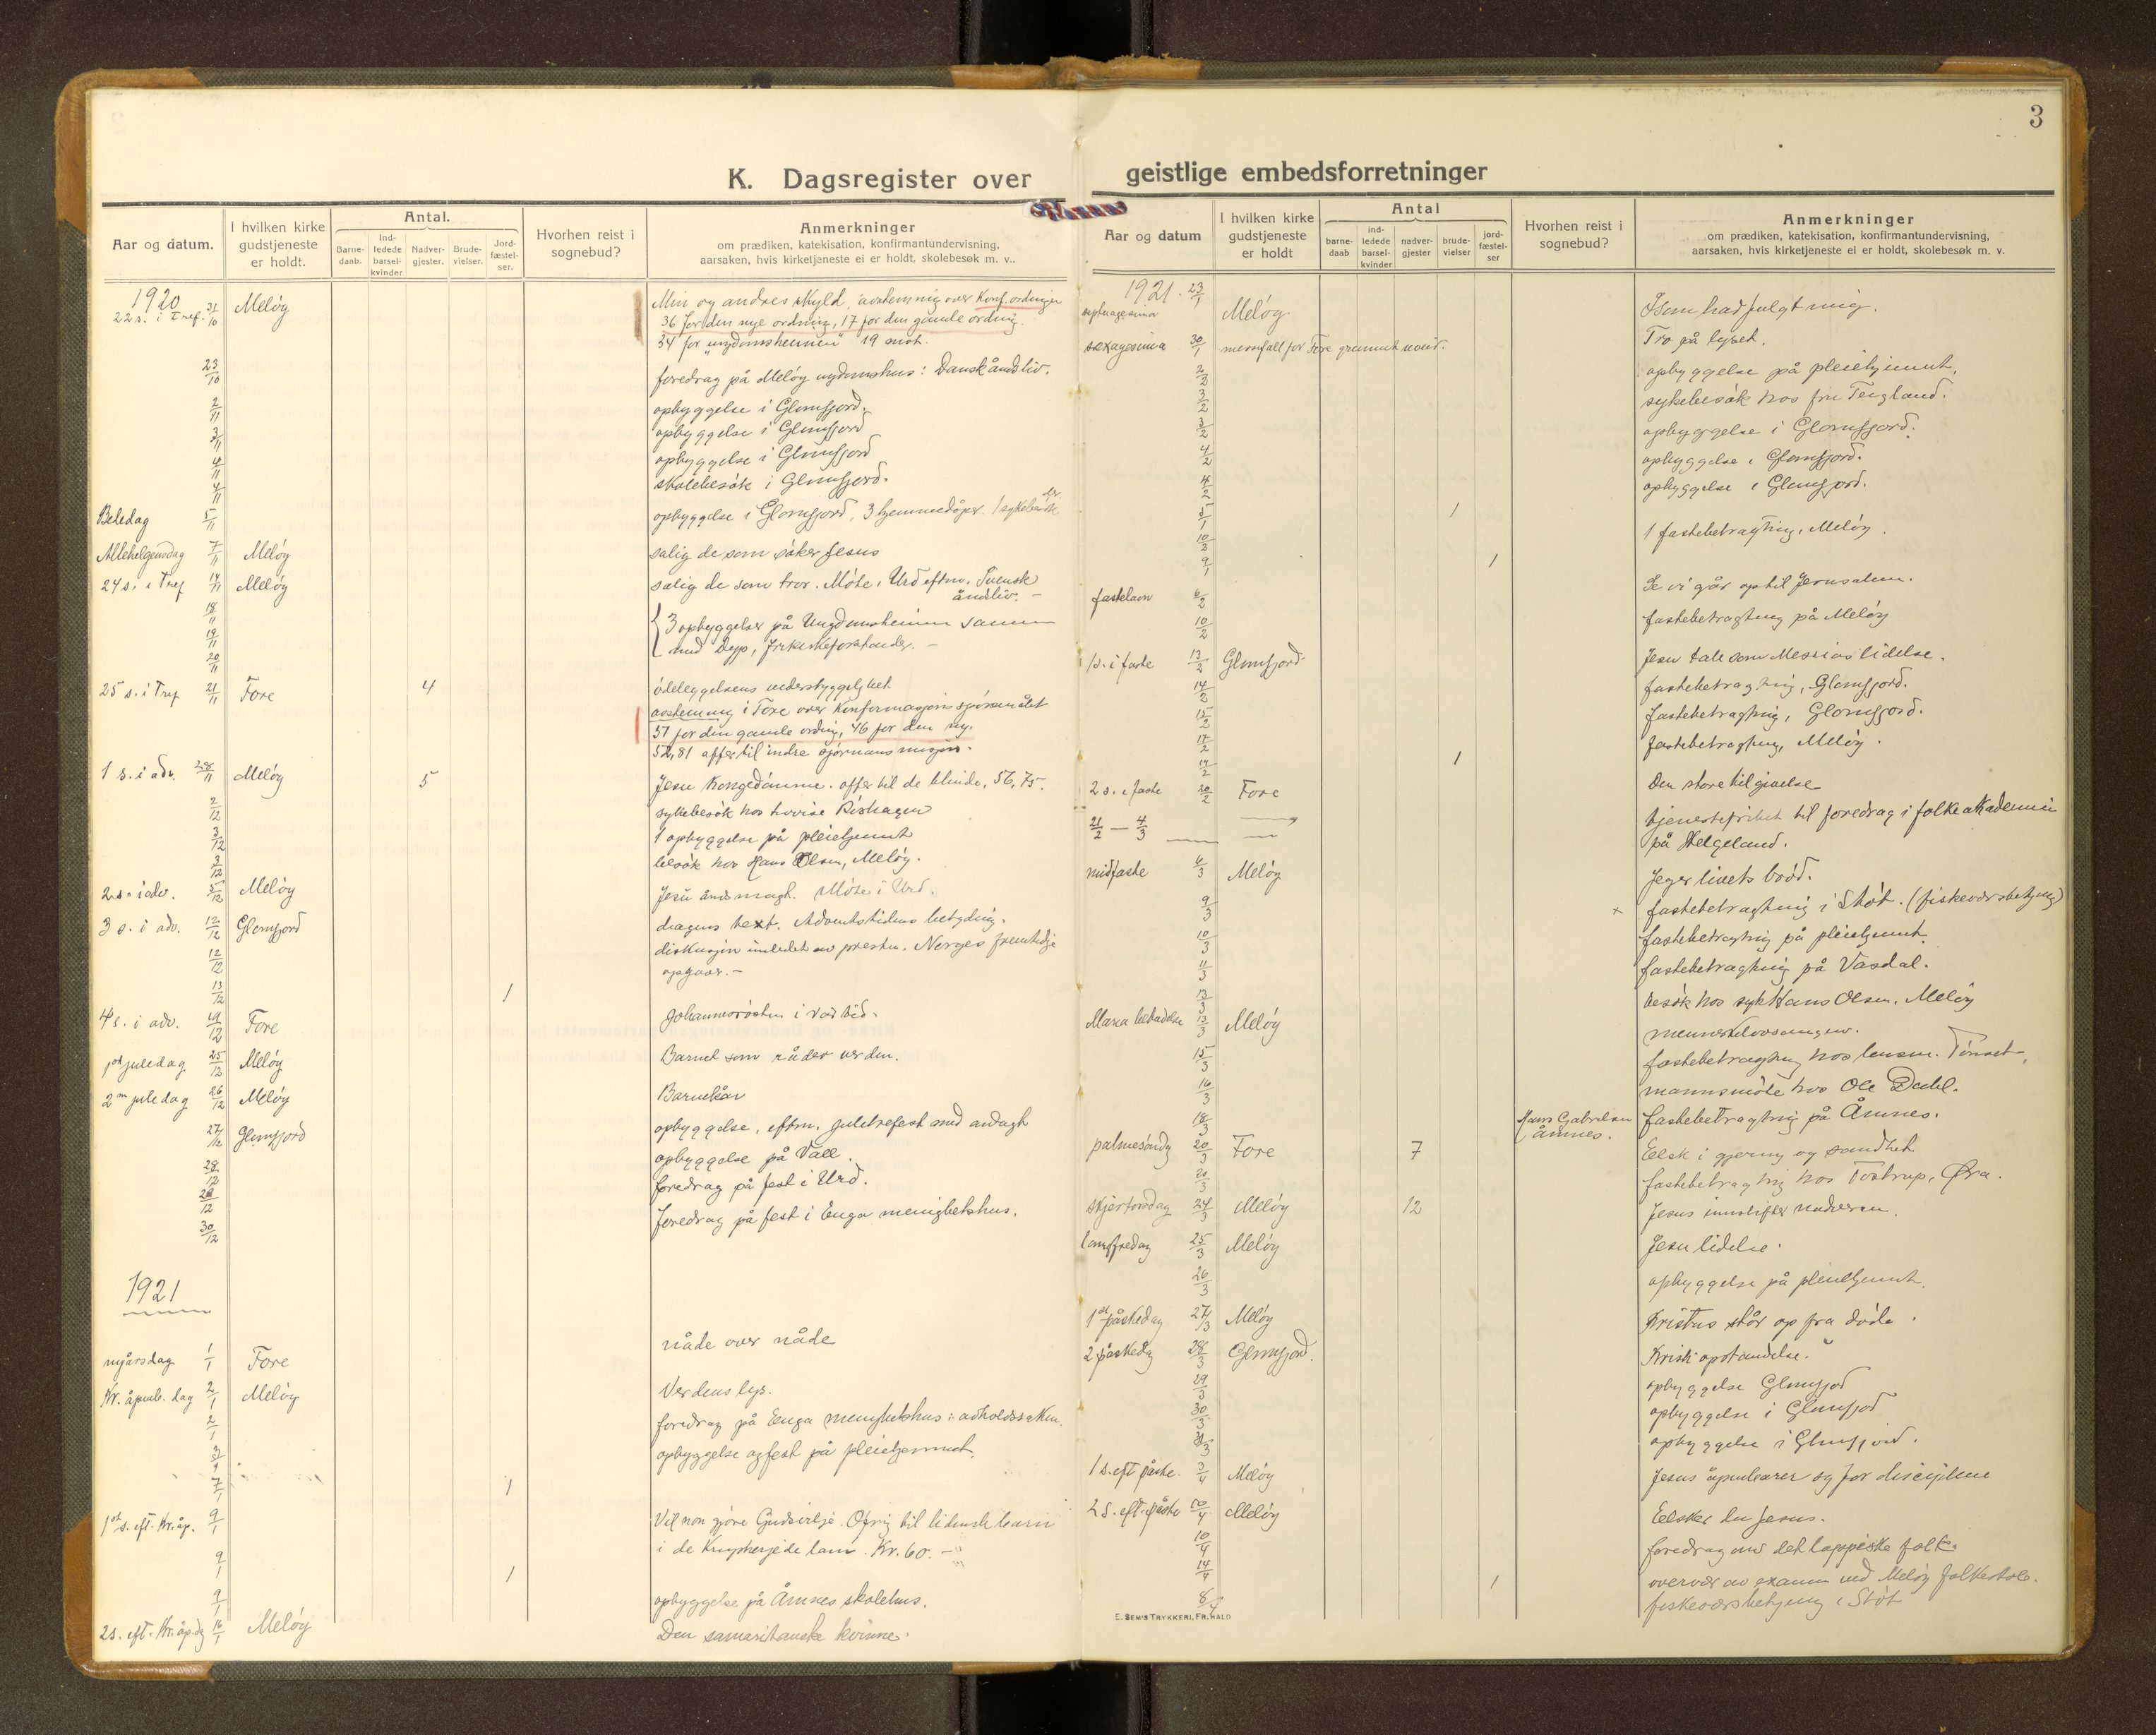 3
K. Dagsregister over geistlige embedsforretninger
Aar og datum.
I hvilken kirke gudstjeneste er holdt.
Antal.
Barne-daab.
Ind-ledede barsel-kvinder
Nadver-gjester.
Brude-vielser.
Jord-fæstel-ser.
Hvorhen reist i sognebud?
Anmerkninger
om prædiken, katekisation, konfirmantundervisning,
aarsaken, hvis kirketjeneste ei er holdt, skolebesøk m. v..
1920
22 s. i Tref. 31/10 Meløy Min og andres skyld, avstemnig over Konf. ordningen
36 for den nye ordning, 17 for den gamle ordnig.
34 for "ungdomsheimen" 19 mot.
23/10 foredrag på Meløy ungdomshus: Dansk åndsliv.
2/11 opbyggelse i Glomfjord.
3/11 opbyggelse i Glomfjord
4/11 opbyggelse i Glomfjord
4/11 skolebesøk i Glomfjord.
Bededag 5/11 opbyggelse i Glomfjord, 3 hjemmedåper. 1 sykebesøk
Allehelgensdag 7/11 Meløy salig de som søker Jesus
24 s. i Tref 14/11 Meløy salig de som tror. Møte i Urd eftm. Svensk
åndsliv. –
18/11 3 opbyggelser på Ungdomsheimen sammen
19/11 med Dypp,
20/11
25 s. i Tref 21/11 Fore 4 ødeleggelsens vederstyggelighet
avstemning i Fore over Konfirmasjonsspørsmålet
57 for den gamle ordnig, 46 for den ny.
52,81 offer til indre sjømannsmisjon.
1 s. i adv. 28/11 Meløy 5 Jesu Kongedømme. offer til de blinde, 56,75.
2/12 sykebesøk hos
3/12 1 opbyggelse på pleiehjemmet
3/12 besøk hos Hans Olsen, Meløy.
2 s. i adv. 5/12 Meløy Jesu åndsmagt. Møte i Urd.
3 s. i adv. 12/12 Glomfjord dagens text. Adventstidens betydnig.
12/12 diskusjon innledet av presten. Norges fremtidige
opgaver. –
13/12 1
4 s. i adv. 19/12 Fore Johannesrøsten i vor tid.
1ste juledag 25/12 Meløy Barnet som råder verden.
2n juledag 26/12 Meløy Barnekår
27/12 Glomfjord opbyggelse, eftm. juletrefest med andagt
28/12 opbyggelse på Vall.
29/12 foredrag på fest i Urd.
30/12 foredrag på fest i Enga menighetshus.
1921
nyårsdag 1/1 Fore nåde over nåde
Kr. åpenb. dag 2/1 Meløy Verdens lys.
2/1 foredrag på Enga menighetshus: avholdssaken.
3/1 opbyggelse og fest på pleiehjemmet
7/1 1
1st s. eft. Kr. åp. 9/1 Vil non gjøre Guds vilje. Ofrig til lidende barn
i de Krigsherjede land. Kr. 60. –
9/1 1
9/1 opbyggelse på Åmnes skolehus.
2 s. eft. Kr. åp. dg 16/1 Meløy Den samaritanske kvinne.
Aar og datum
I hvilken kirke gudstjeneste er holdt
Antal
barne-daab
ind-ledede barsel-kvinder
nadver-gjester
brude-vielser
jord-fæstel-ser
Hvorhen reist i sognebud?
Anmerkninger
om prædiken, katekisation, konfirmantundervisning,
aarsaken, hvis kirketjeneste ei er holdt, skolebesøk m. v.
1921. 23/1
septuagesima Meløy I som har fulgt mig.
sexagesima 30/1 messefall for Fore grunnet uveir. Tro på lyset.
2/2 opbyggelse på pleiehjemmet.
3/2 sykebesøk hos fru Teigland.
3/2 opbyggelse i Glomfjord.
4/2 opbyggelse i Glomfjord.
4/2 opbyggelse i Glomfjord.
5/1 1
10/2 1 fastebetragtnig, Meløy.
9/1 1
fastelavn 6/2 Se vi går op til Jerusalem.
10/2 fastebetragtnig på Meløy
1 s. i faste 13/2 Glomfjord Jesu tale som Messias lidelse.
14/2 fastebetragtnig, Glomfjord.
15/2 fastebetragtnig, Glomfjord.
17/2 fastebetragtnig, Meløy.
17/2 1
2 s. i faste 20/2 Fore Den store tilgivelse
21/2 – 4/3 tjenestefrihet til foredrag i folkeakademier
på Helgeland.
midfaste 6/3 Meløy Jeg er livets brød.
9/3 x fastebetragtnig i Støt. (fiskeværsbetjenig)
10/3 fastebetragtnig på pleiehjemmet.
11/3 fastebetragtnig på Vasdal.
13/3 besøk hos syk Hans Olsen, Meløy
Maria bebudelse 13/3 Meløy
15/3 fastebetragtnig hos lensm. Tønset,
16/3 mannsmøte hos Ole Dahl.
18/3 Hans Gabrielsen Åmnes. fastebetragtnig på Åmnes.
palmesøndg 20/3 Fore 7 Elsk i gjerning og sandhet
20/3 fastebetragtnig hos Tostrup, Øra.
skjærtorsdag 24/3 Meløy 12 Jesus innstifter nadveren.
langfredag 25/3 Meløy Jesu lidelse.
26/3 opbyggelse på pleiehjemmet.
1ste påskedag 27/3 Meløy Kristus står op fra døde.
2 påskedg 28/3 Glomfjord. Kristi opstandelse.
29/3 opbyggelse Glomfjord
30/3 opbyggelse i Glomfjord
31/3 opbyggelse i Glomfjord.
1 s. eft påske. 3/4 Meløy Jesus åpenbarer sig for disciplene
2 s. eft. påske 10/4 Meløy Elsker du Jesus.
10/4 foredrag om det lappiske folk.
14/4 1 overvær av examen ved Meløy folkeskole.
8/4 fiskeværsbetjenig i Støt
E. SEM'S TRYKKERI, FR.HALD